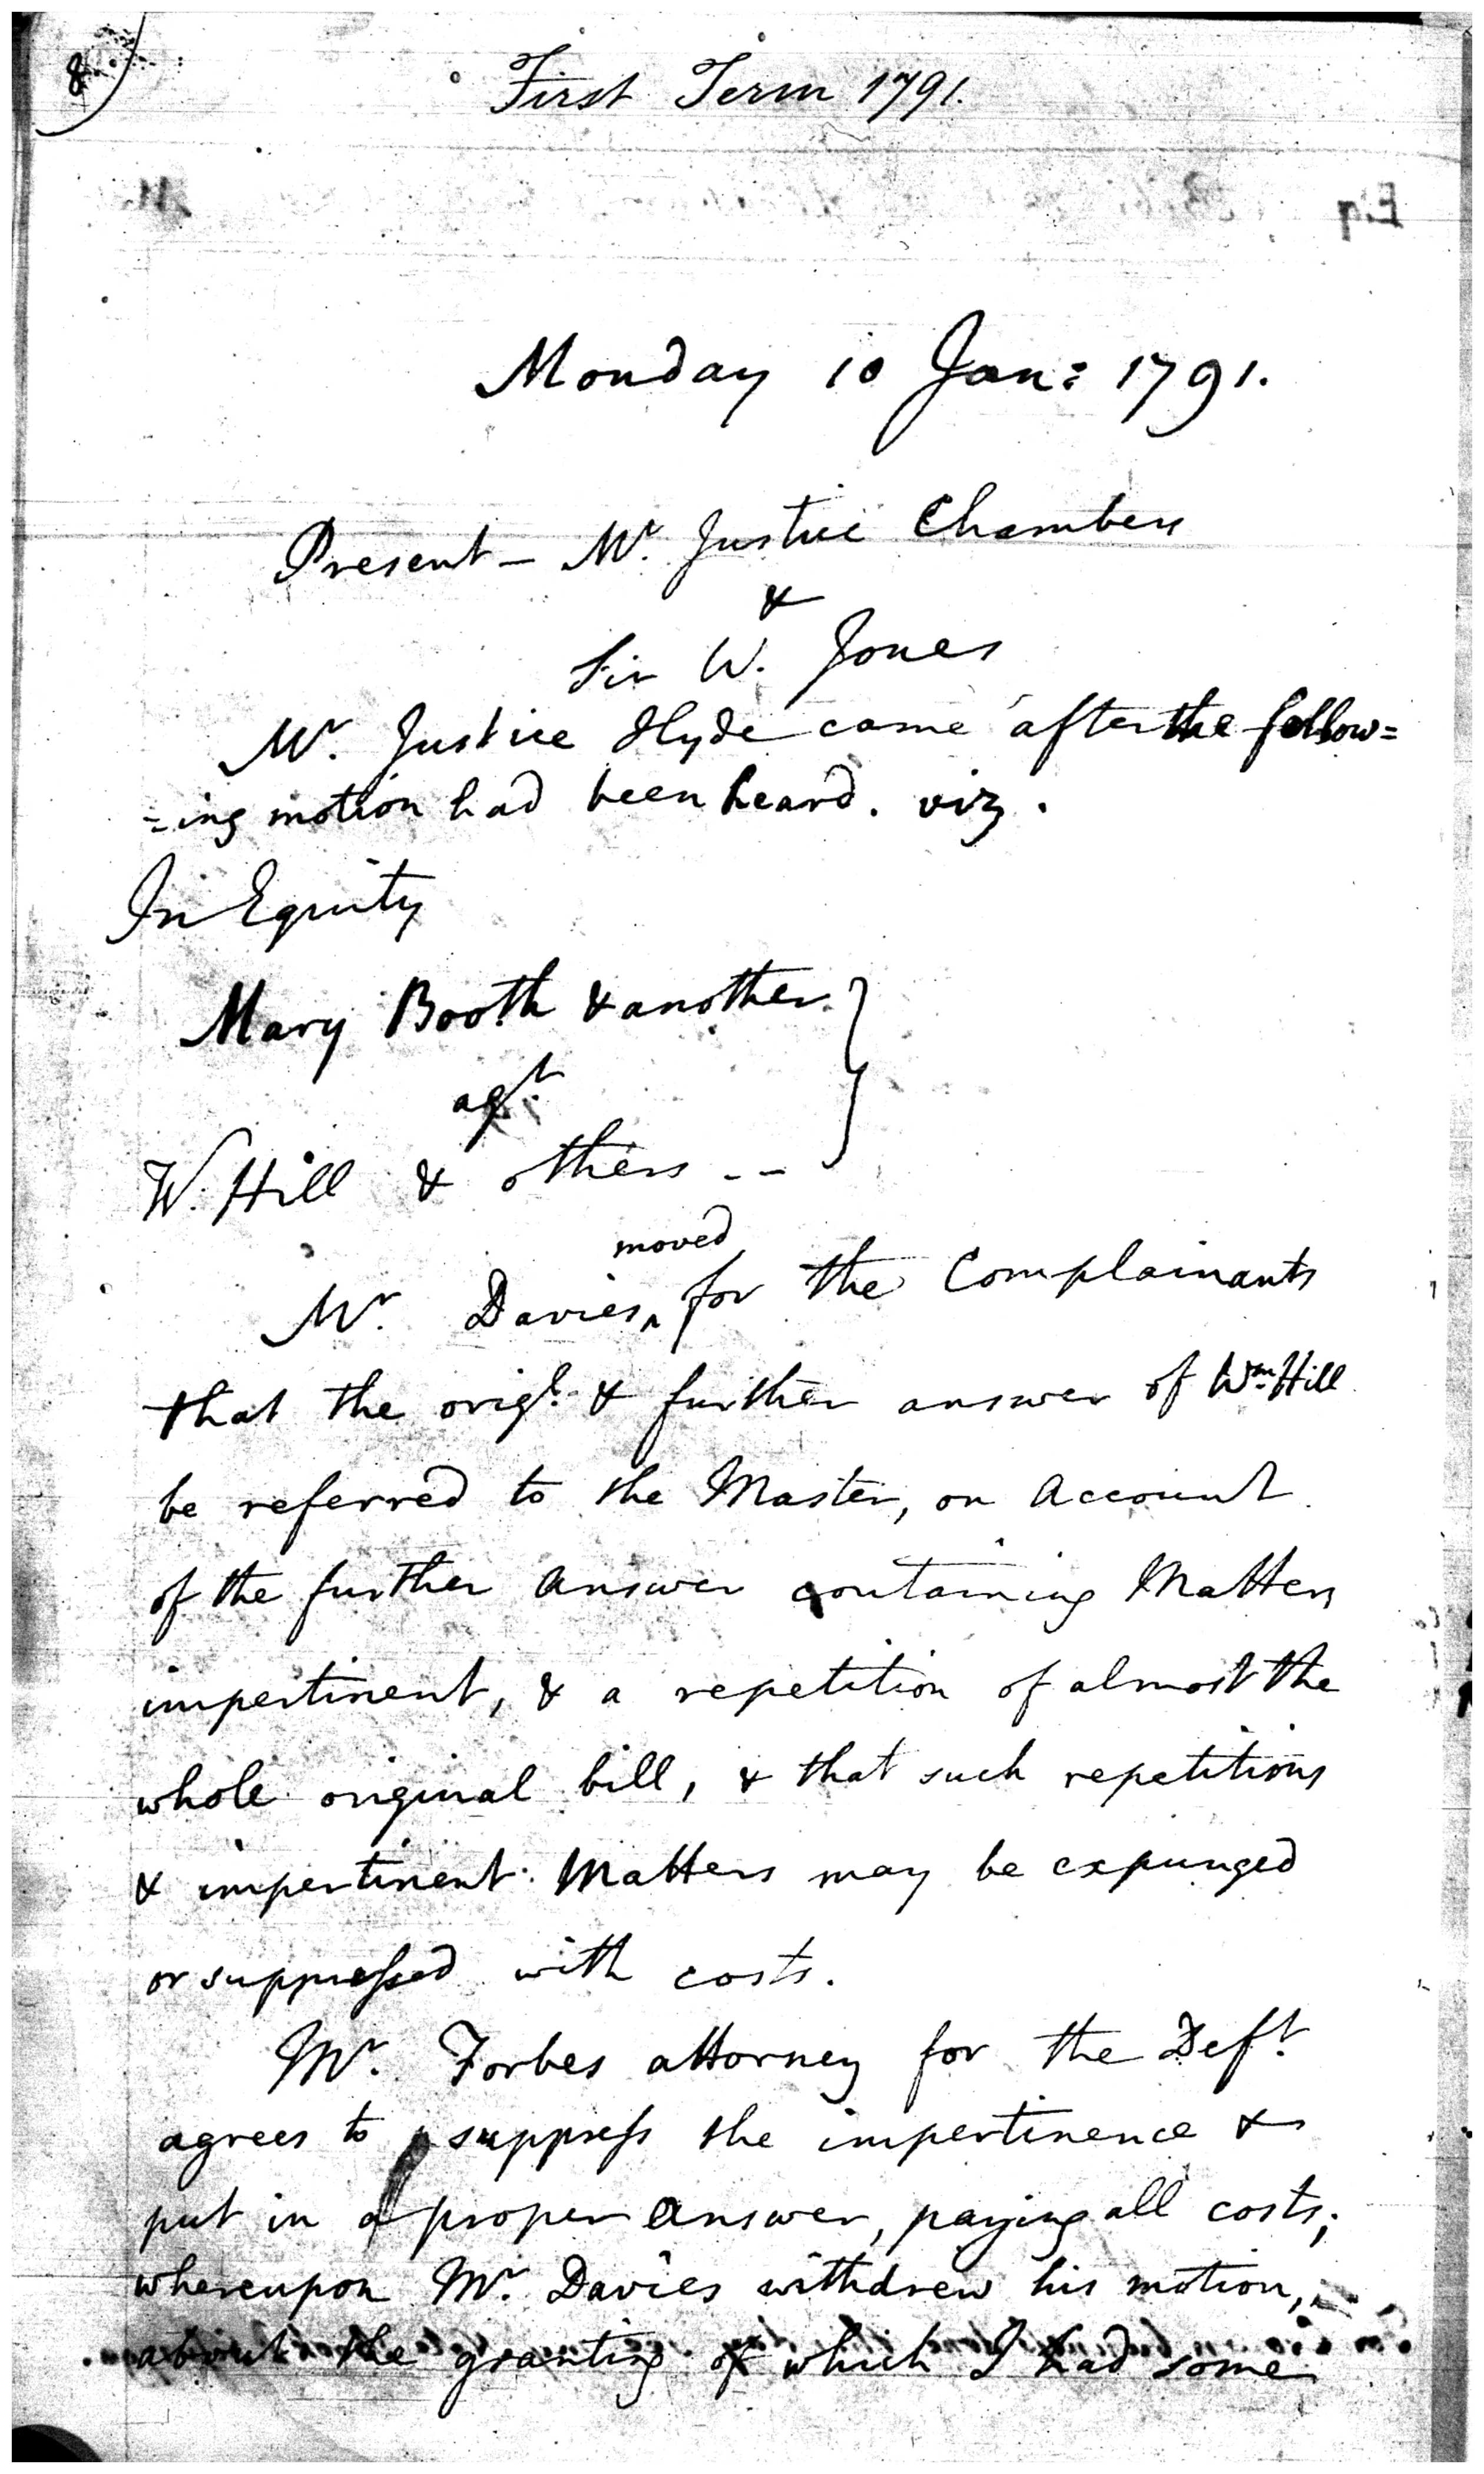 8
First Term 1791.
Monday 10 Jan: 1791.
Present - Mr. Justice Chambers
&
Sir W. Jones
Mr. Justice Hyde came after the follow=
=ing motion had been heard. viz.
In Equity
Mary Booth & another
agt.
W. Hill & others --
moved
Mr. Davies ‸ for the Complainants
that the origl. & further answer of Wm. Hill
be referred to the Master, on Account
of the further Answer containing Matters
impertinent, & a repetition of almost the
whole original bill, & that such repetitions
& impertinent Matters may be expunged
or suppressed with costs.
Mr. Forbes attorney for the Deft.
agrees to suppress the impertinence &
put in a proper Answer, paying all costs;
whereupon Mr. Davies withdrew his motion,
about the granting of which I had some